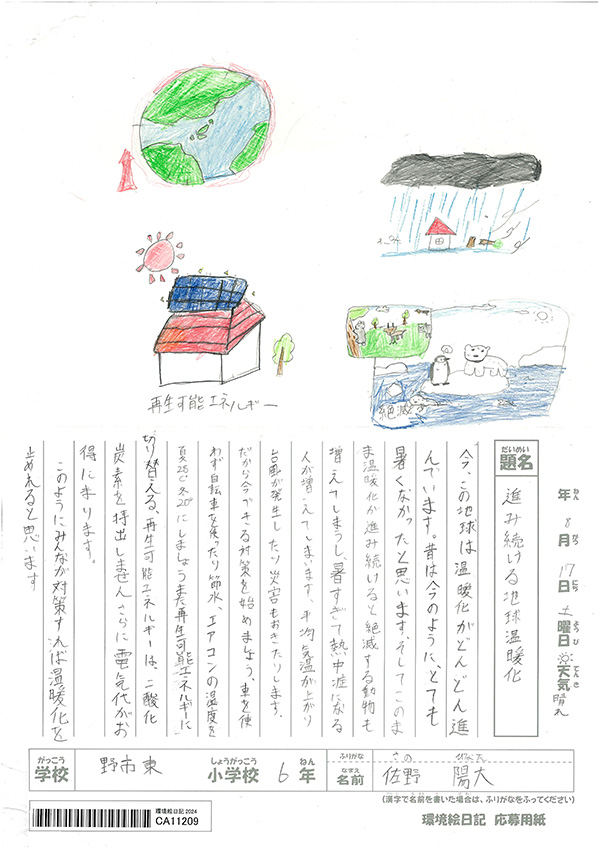 再生可能エネルギー
絶滅
だいめい
題名
進み続ける地球温暖化
年 8月17日 土曜日 天気 晴れ
ねん がつ にち ようび てんき
今、この地球は温暖化がどんどん進
んでいます。昔は今のように、とても
暑くなかったと思います。そしてこのま
ま温暖化が進み続けると絶滅する動物も
増えてしまうし、暑すぎて熱中症になる
人が増えてしまいます。平均気温が上がり
台風が発生したり災害もおきたりします。
だから今できる対策を始めましょう、車を使
わず自転車を使ったり節水、エアコンの温度を
夏28℃冬20℃にしましょうまた再生可能エネルギーに
切り替える、再生可能エネルギーは、二酸化
炭素を排出しませんさらに電気代がお
得になります。
このようにみんなが対策すれば温暖化を
止めれると思います
がっこう しょうがっこう ねん ふりがな さの
学校 野市東 小学校 6年 なまえ 名前 佐野 陽大
(漢字で名前を書いた場合は、ふりがなをふってください)
環境絵日記 2024
CA11209
環境絵日記 応募用紙